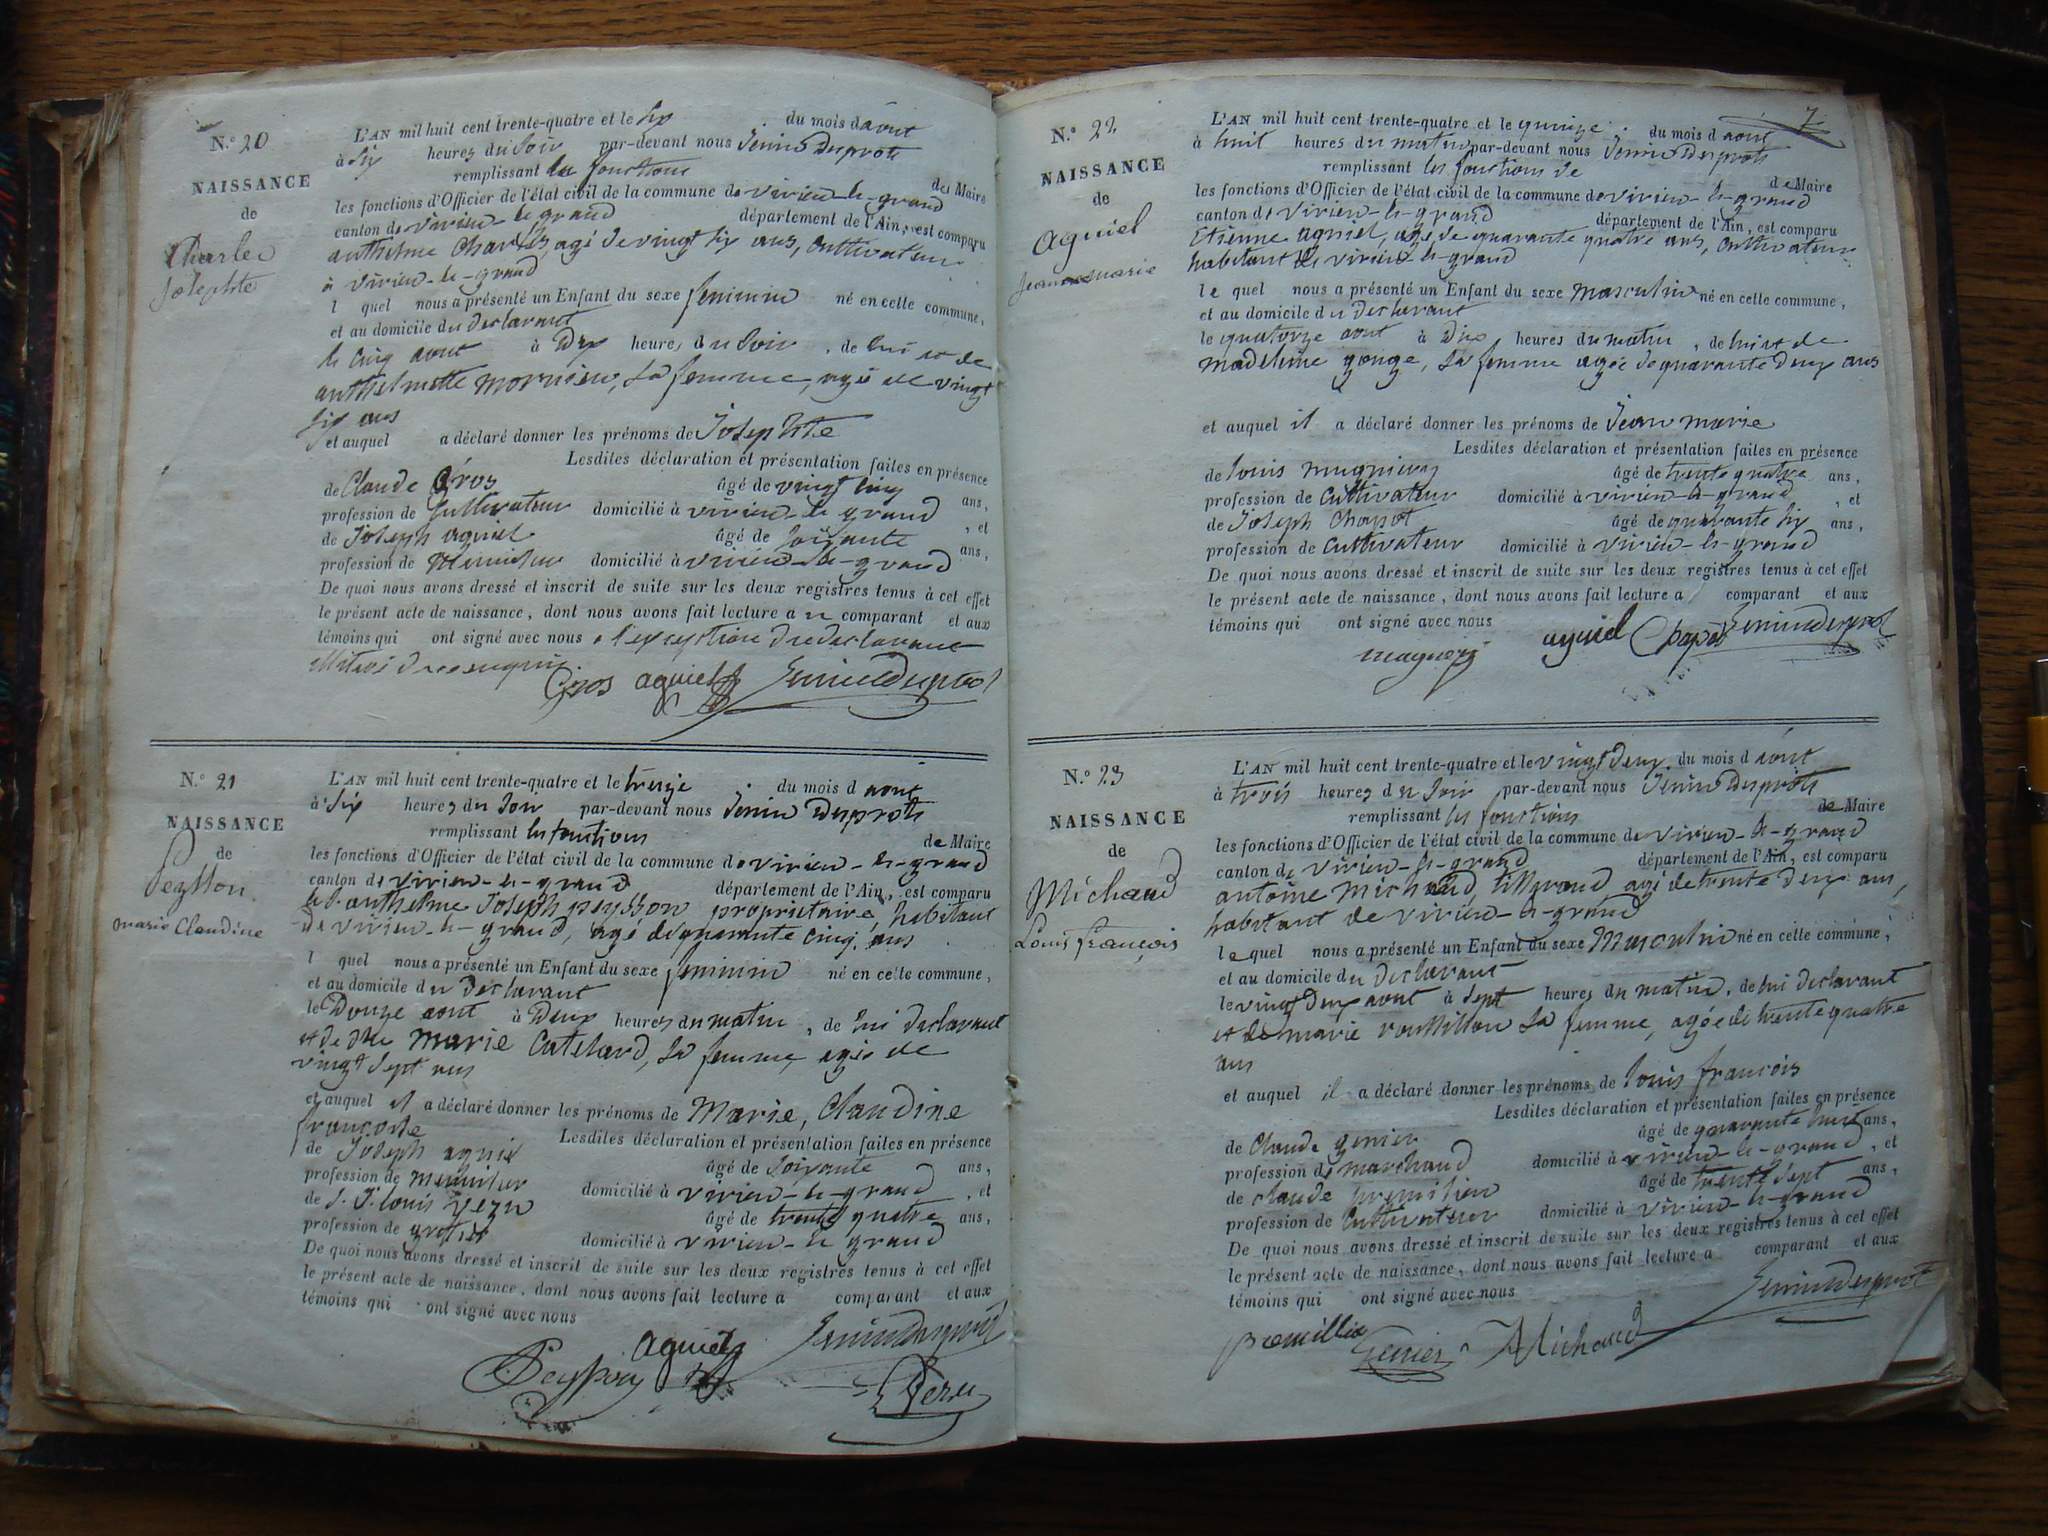 N.º 20
NAISSANCE
de
Charles
Josephte
L'AN mil huit cent trente-quatre et le six du mois d août
à six heures du soir par-devant nous Jenin Desprots
remplissant les fonctions de Maire
les fonctions d'Officier de l'état civil de la commune de virieu-le-grand
canton de virieu-le-grand département de l'Ain, est comparu
anthelme Charles, agé de vingt six ans, Cultivateur
à virieu-le-grand
l quel nous a présenté un Enfant du sexe feminin né en cette commune,
et au domicile du declarant
le cinq aout à dix heures du soir, de lui et de
anthelmette mornieu, sa femme, agée de vingt
six ans
et auquel a déclaré donner les prénoms de Josephte
Lesdites déclaration et présentation faites en présence
de Claude Gros âgé de vingt cinq ans,
profession de Cultivateur domicilié à virieu-le-grand, et
de Joseph aguiel âgé de soixante ans,
profession de menuisier domicilié à virieu-le-grand
De quoi nous avons dressé et inscrit de suite sur les deux registres tenus à cet effet
le présent acte de naissance, dont nous avons fait lecture au comparant et aux
témoins qui ont signé avec nous a l'exception du declarant
illiteré de ce enquis
Gros aguiel Jenin Desprot
N.º 21
NAISSANCE
de
Peysson
marie Claudine
L'AN mil huit cent trente-quatre et le treize du mois d aout
à six heures du soir par-devant nous Jenin Desprots
remplissant les fonctions de Maire
les fonctions d'Officier de l'état civil de la commune de virieu-le-grand
canton de virieu-le-grand département de l'Ain, est comparu
anthelme Joseph peysson propriétaire, habitant
de virieu-le-grand, agé de quarante cinq ans
l quel nous a présenté un Enfant du sexe feminin né en cette commune,
et au domicile du declarant
le Douze aout à Deux heures du matin, de lui declarant
et de dme marie Catelard, sa femme, agée de
vingt sept ans
et auquel il a déclaré donner les prénoms de Marie, Claudine
françoise
Lesdites déclaration et présentation faites en présence
de Joseph aguiel âgé de soixante ans,
profession de menuisier domicilié à virieu-le-grand, et
de J. J. louis yezu âgé de trente quatre ans,
profession de grefier domicilié à virieu-le grand
De quoi nous avons dressé et inscrit de suite sur les deux registres tenus à cet effet
le présent acte de naissance, dont nous avons fait lecture a comparant et aux
témoins qui ont signé avec nous
Peysson aguiel Jenin Desprot
Yezu
7
N.º 22
NAISSANCE
de
aguiel
jean marie
L'AN mil huit cent trente-quatre et le quinze du mois d aout
à huit heures du matin par-devant nous Jenin Desprots
remplissant les fonctions de de Maire
les fonctions d'Officier de l'état civil de la commune de virieu-le-grand
canton de virieu-le-grand département de l'Ain, est comparu
Etienne aguiel, agé de quarante quatre ans, Cultivateur
habitant de virieu-le-grand
le quel nous a présenté un Enfant du sexe masculin né en cette commune,
et au domicile du declarant
le quatorze aout à Dix heures du matin, de lui et de
madeleine gonge, sa femme agée de quarante deux ans
et auquel il a déclaré donner les prénoms de Jean marie
Lesdites déclaration et présentation faites en présence
de louis mugniery âgé de trente quatre ans,
profession de Cultivateur domicilié à virieu-le-grand, et
de Joseph Chapot âgé de quarante six ans,
profession de Cultivateur domicilié à virieu-le-grand
De quoi nous avons dressé et inscrit de suite sur les deux registres tenus à cet effet
le présent acte de naissance, dont nous avons fait lecture a comparant et aux
témoins qui ont signé avec nous
aguiel Chapot Jenin Desprot
N.º 23
NAISSANCE
de
Michaud
Louis françois
L'AN mil huit cent trente-quatre et le vingt deux du mois d aout
à trois heures du soir par-devant nous Jenin Desprots
remplissant les fonctions de Maire
les fonctions d'Officier de l'état civil de la commune de virieu-le-grand
canton de virieu-le-grand département de l'Ain, est comparu
antoine Michaud, tisserand, agé de trente deux ans,
habitant de virieu-le-grand
le quel nous a présenté un Enfant du sexe Masculin né en cette commune,
et au domicile du declarant
le vingt deux aout à sept heures du matin, de lui declarant
et de marie roussillon sa femme, agée de trente quatre
ans
et auquel il a déclaré donner les prénoms de louis françois
Lesdites déclaration et présentation faites en présence
de Claude genier âgé de quarante huit ans,
profession de marchand domicilié à virieu-le-grand, et
de claude premilieu âgé de trente sept ans,
profession de Cultivateur domicilié à virieu-le-grand
De quoi nous avons dressé et inscrit de suite sur les deux registres tenus à cet effet
le présent acte de naissance, dont nous avons fait lecture a comparant et aux
témoins qui ont signé avec nous
Jenin Desprot
premillieu Genier Michaud